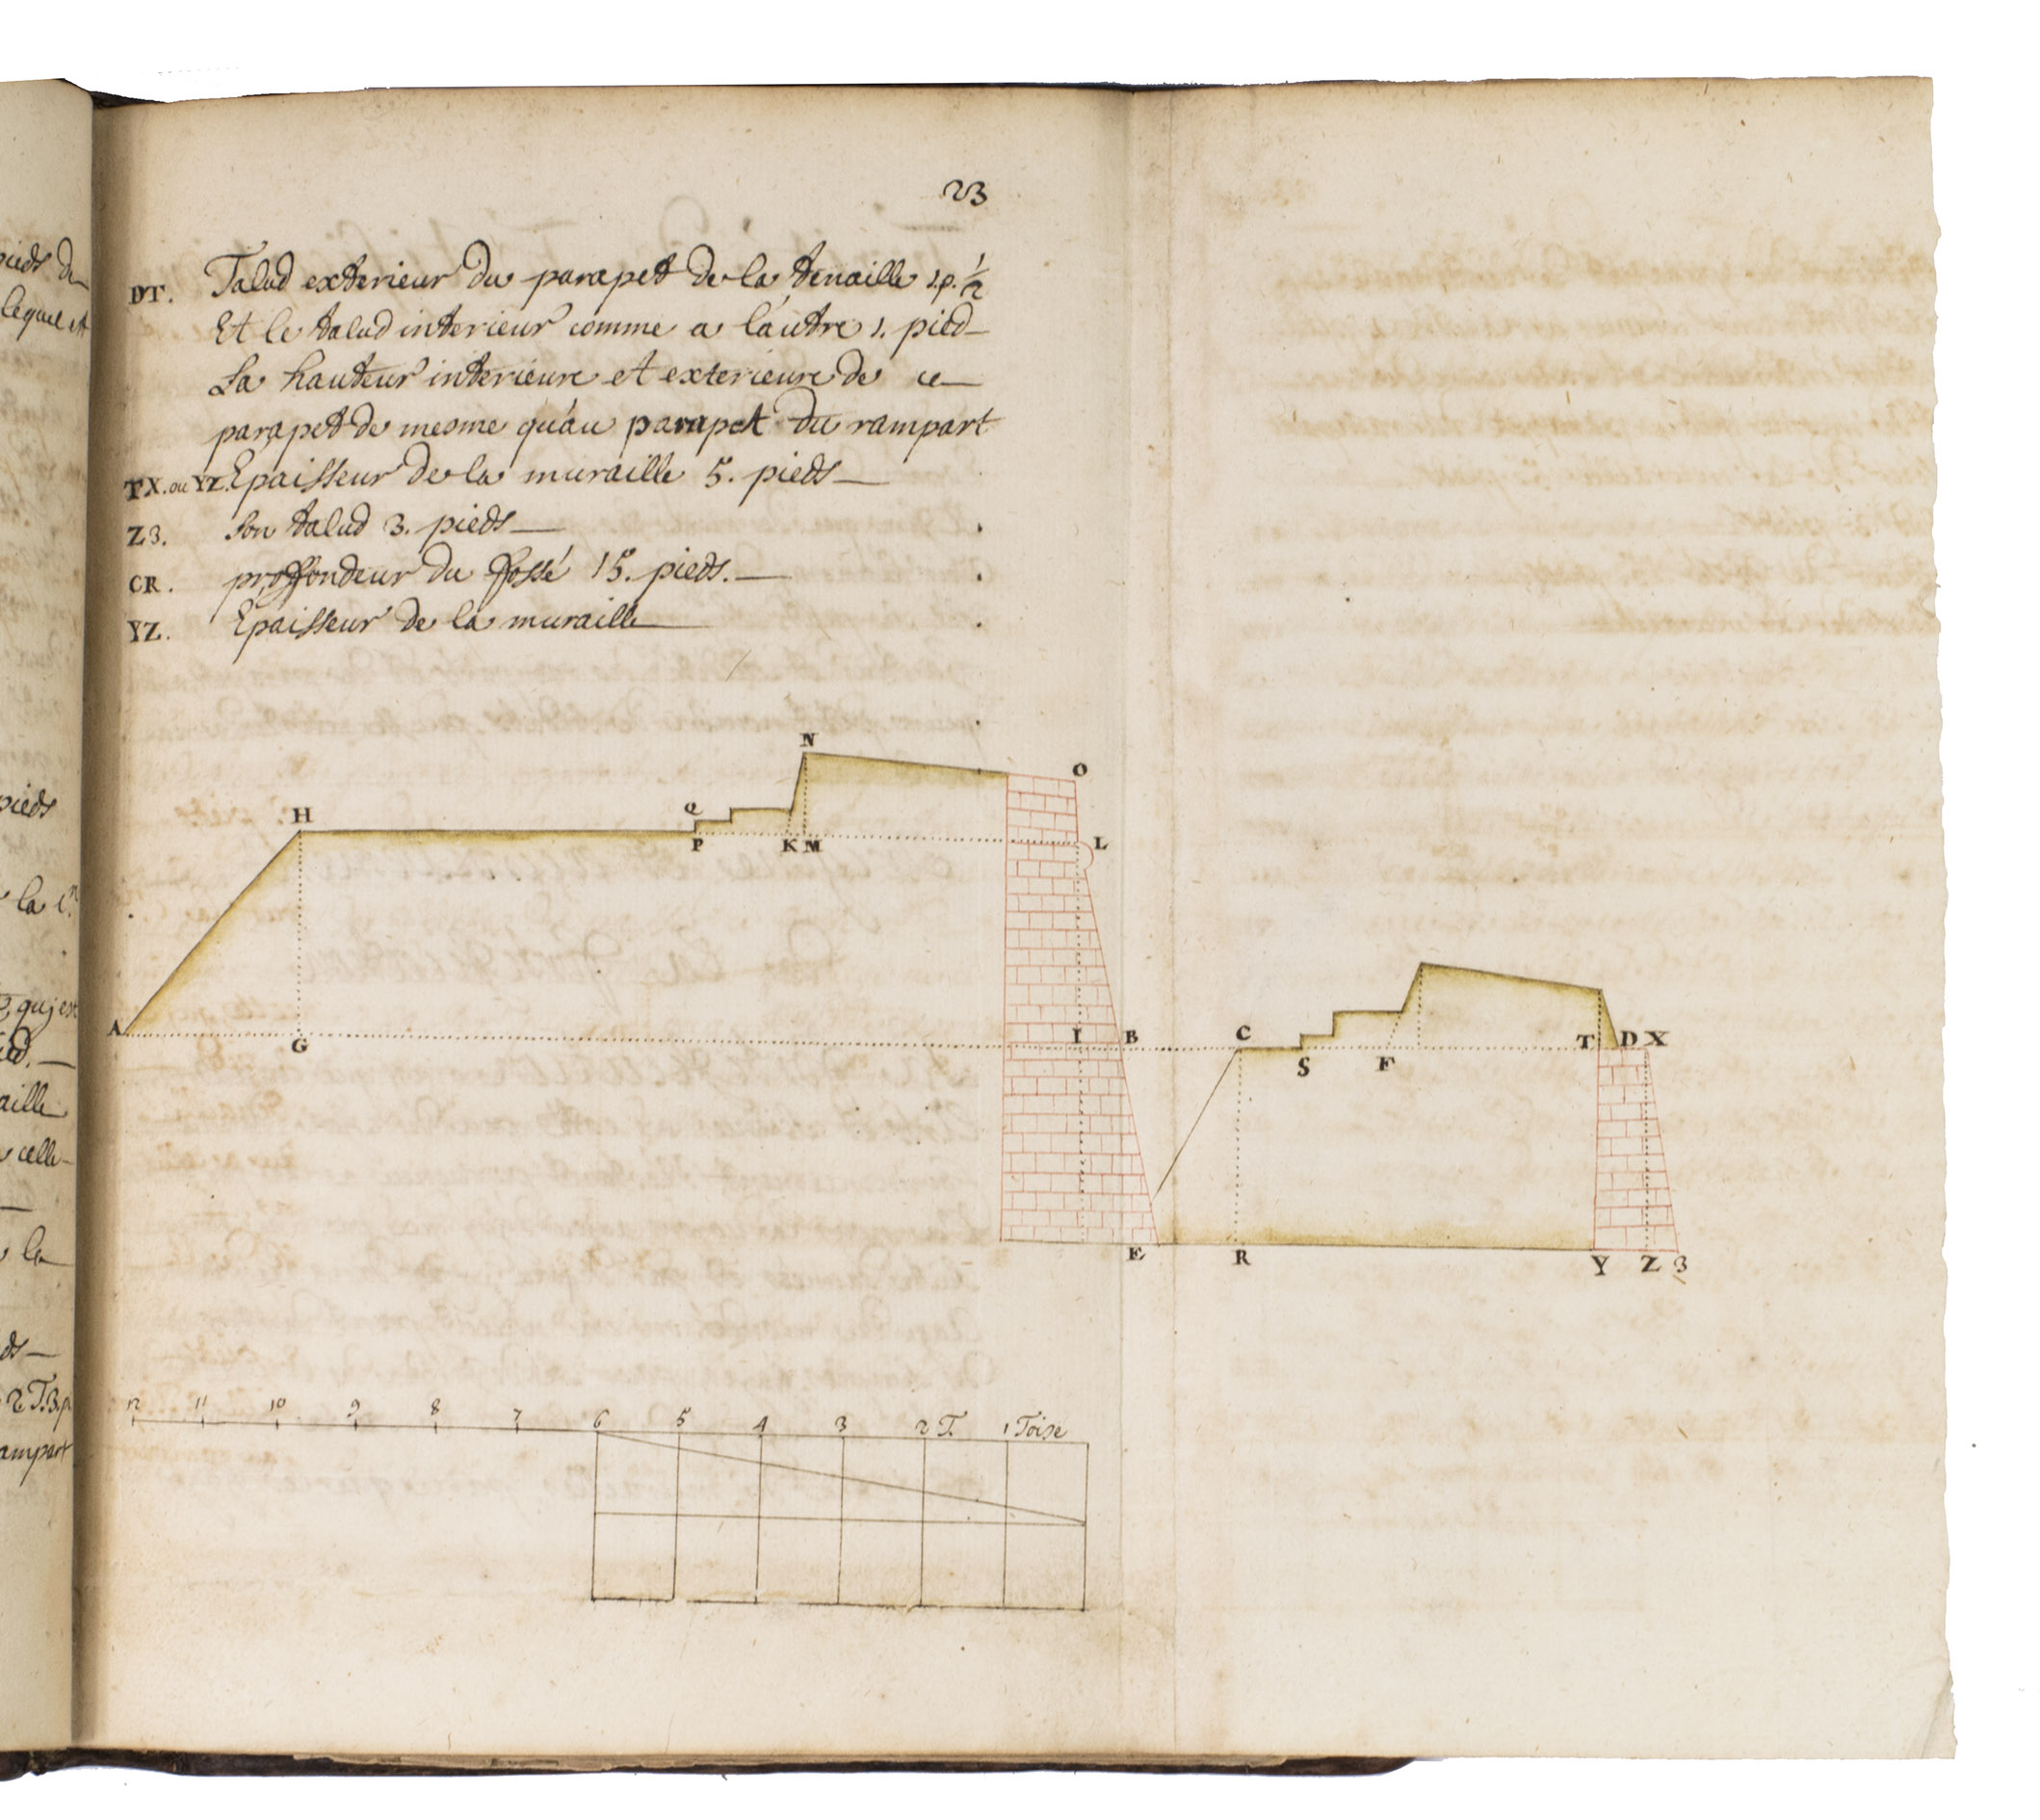 pieds de
lequel et
pieds
la
qui est
aille
celle
la
2 T. 3. p
ampart
23
DT. Talud exterieur du parapet de la tenaille 1. p. 1/2
Et le talud interieur comme a l'autre 1. pied
La hauteur interieure et exterieure de ce
parapet de mesme qu'au parapet du rampart
TX. ou YZ. Epaisseur de la muraille 5. pieds
Z3. Son talud 3. pieds
CR. proffondeur du ffossé 15. pieds.
YZ. Epaisseur de la muraille
N
O
H Q
P K M L
A G I B C T D X
S F
E R Y Z 3
12 11 10 9 8 7 6 5 4 3 2 T. 1 Toise